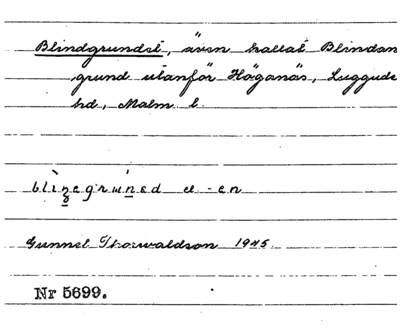 Blindgrundet, även kallat Blindan
grund utanför Höganäs, Luggude
hd, Malm l.
Gunnel Thorwaldson 1945
Nr 5699.